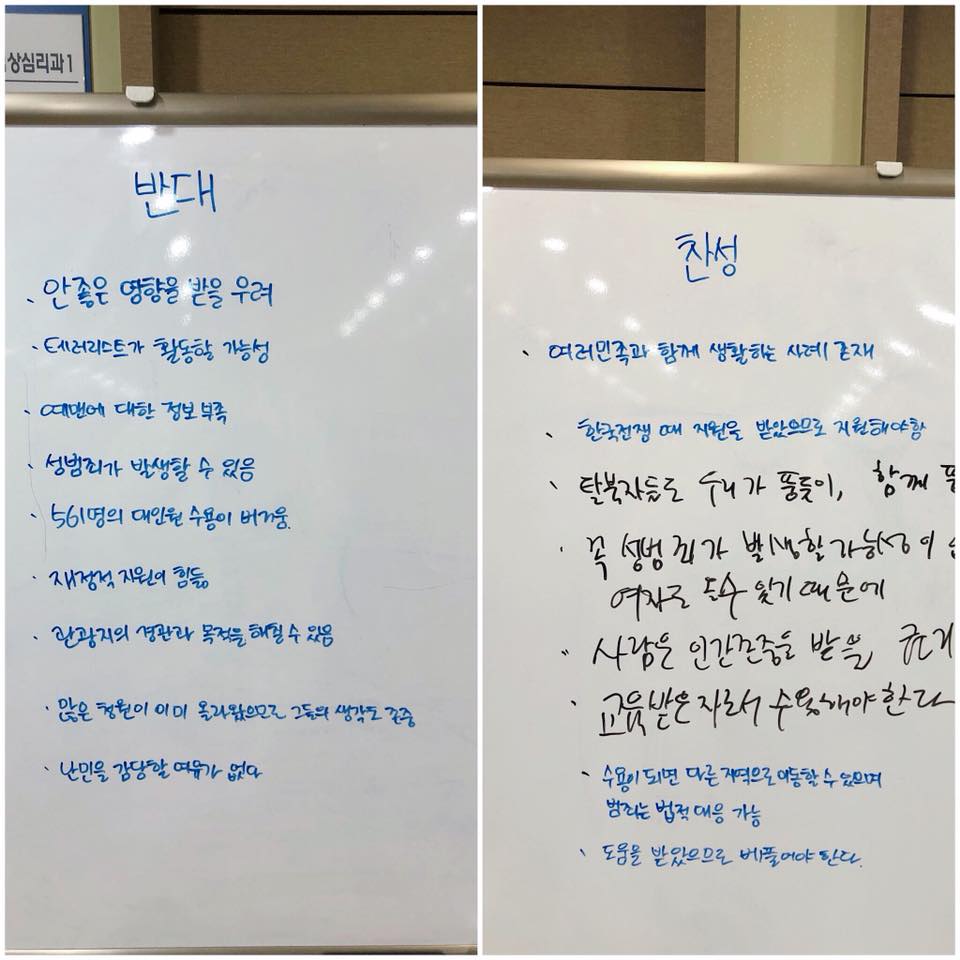 상심리과1
반대
안 좋은 영향을 받을 우려
테러리스트가 활동할 가능성
예맨에 대한 정보 부족
성범죄가 발생할 수 있음
561명의 대인원 수용이 버거움.
재정적 지원의 힘듦
관광지의 경관과 목적을 해칠 수 있음
많은 청원이 이미 올라왔으므로 그들의 생각도 존중
난민을 감당할 여유가 없다
찬성
여러민족과 함께 생활하는 사례 존재
한국전쟁 때 지원을 받았으므로 지원해야함
탈북자들도 우리가 품듯이, 함께
꼭 성범죄가 발생할 가능성이
여자로 둘수 있기 때문에
사람은 인간존중을 받을,
교육받은 자로서 수용해야 한다
수용이 되면 다른 지역으로 이동할 수 있으며
범죄는 법적 대응 가능
도움을 받았으므로 베풀어야 한다.